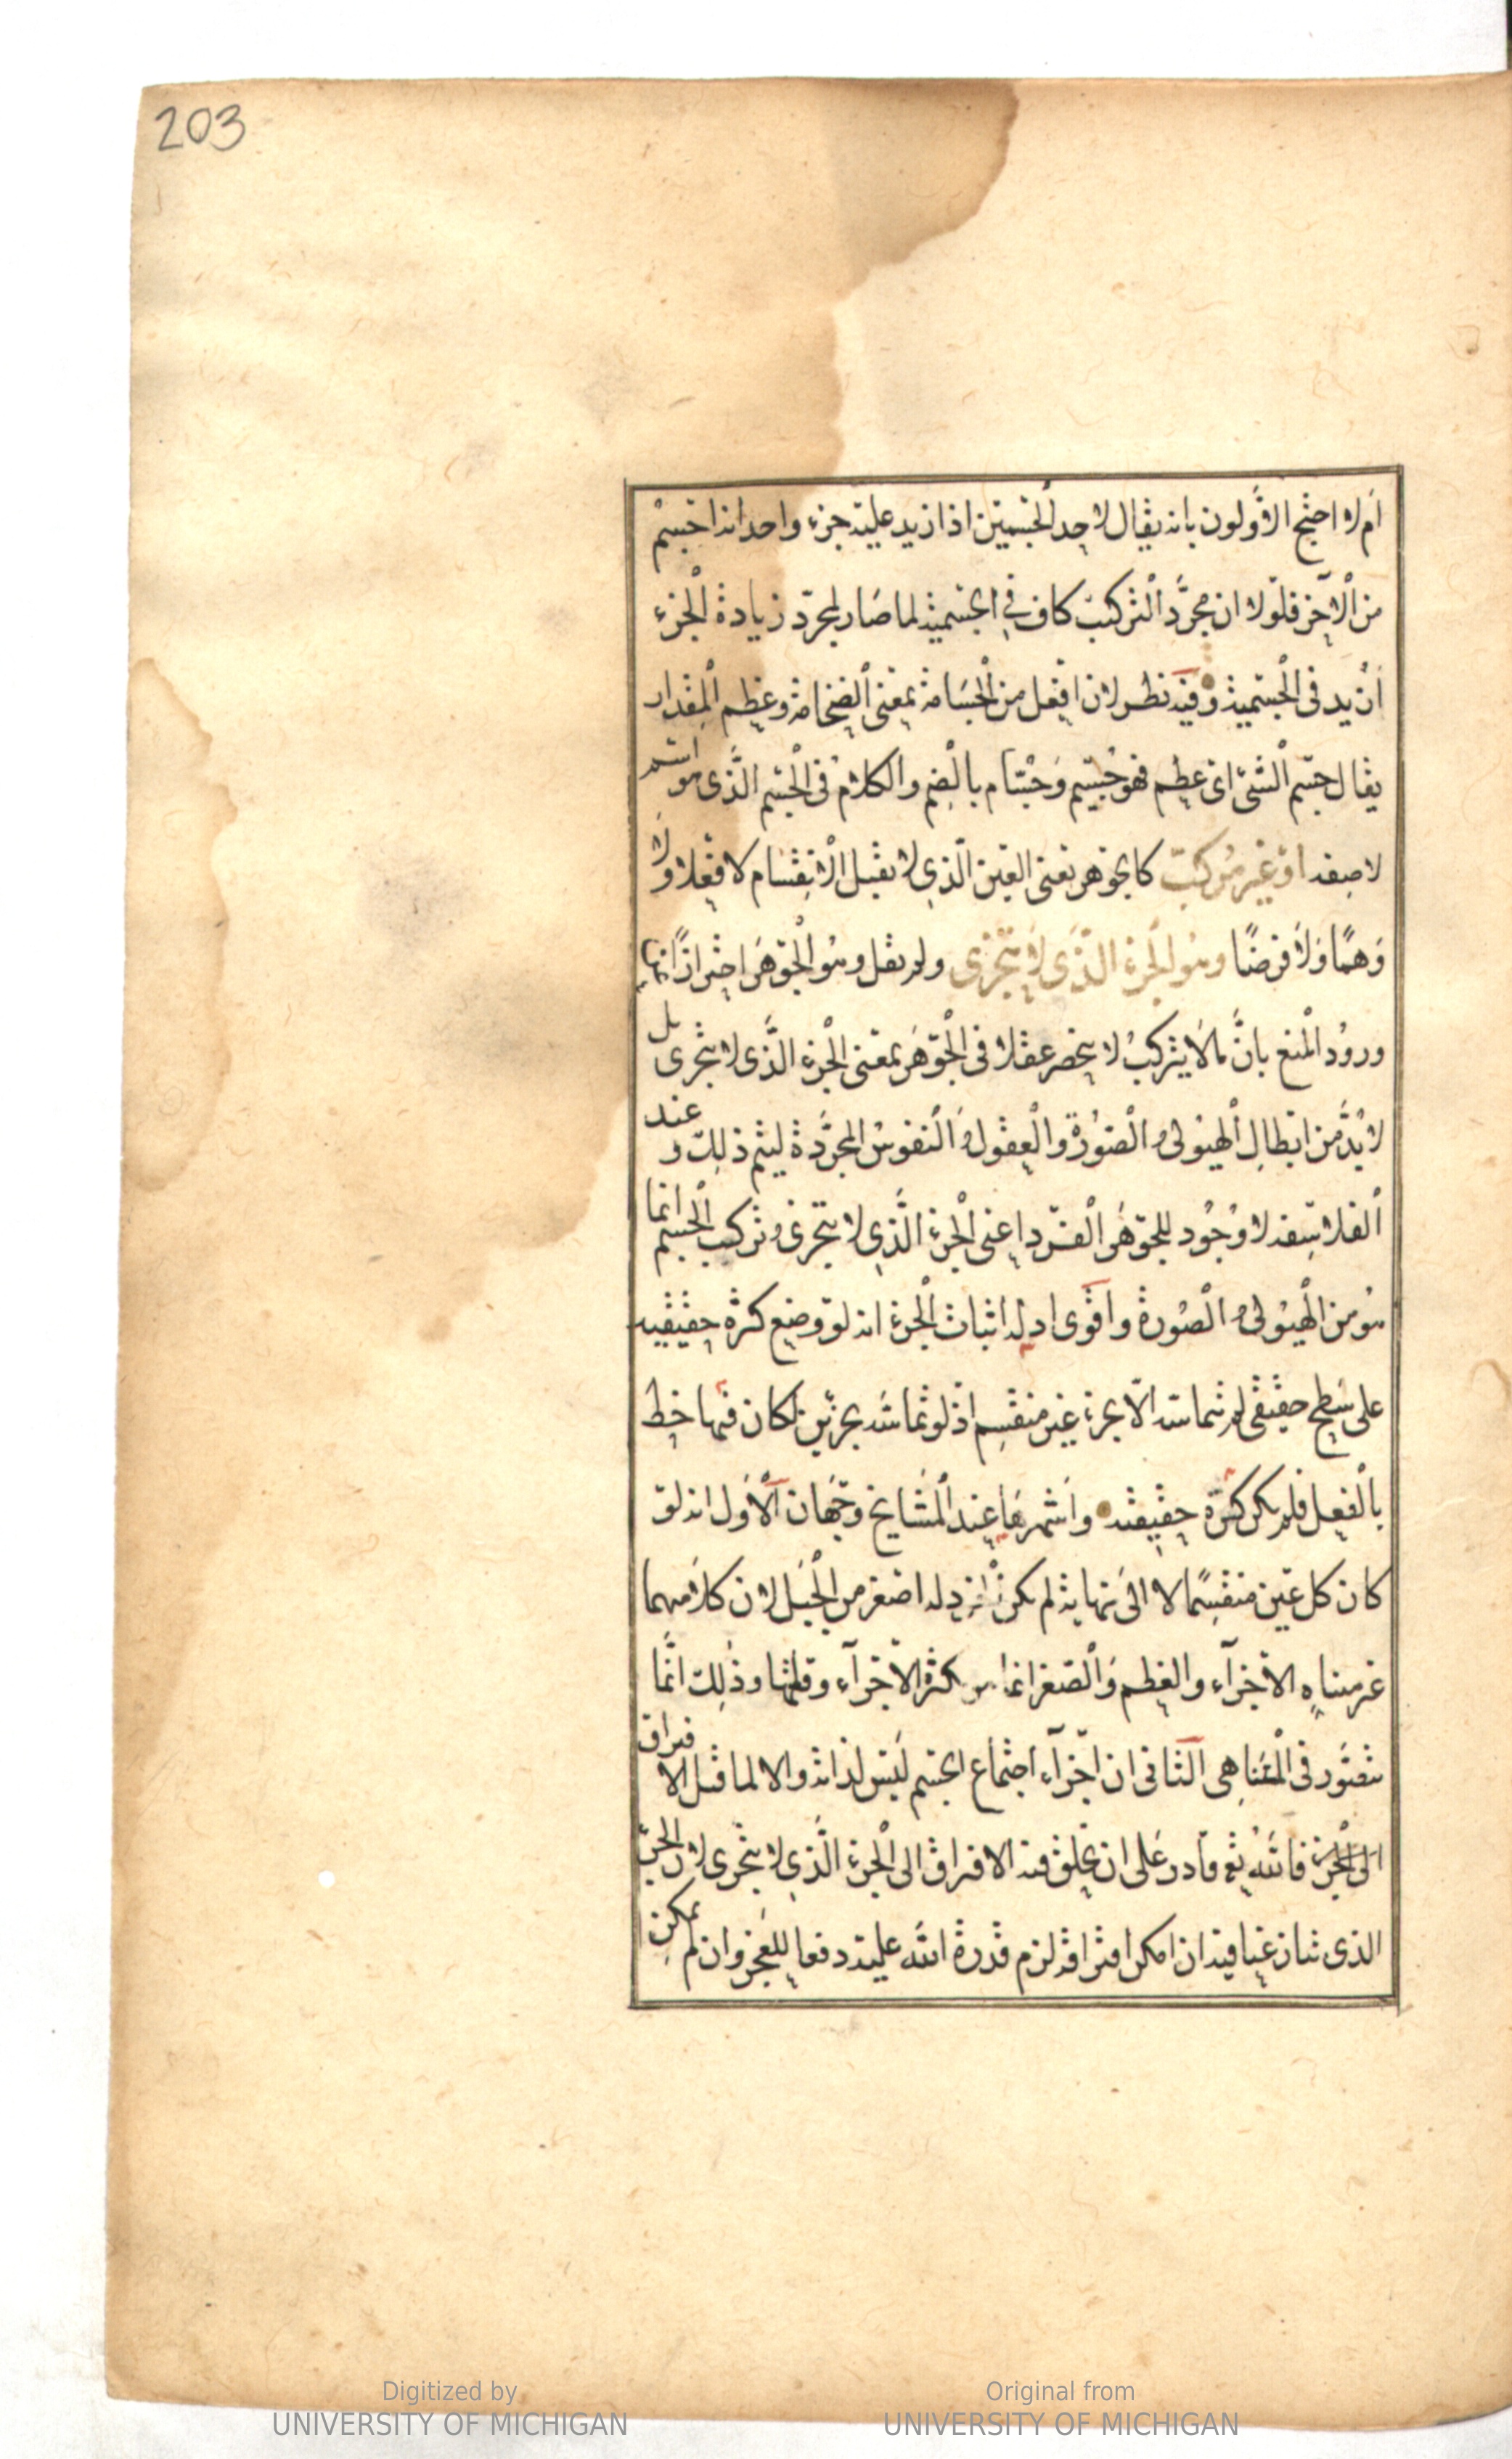 203
ام لا احتج الاولون بانه يقال لاحد الجسمين اذا زيد عليه جزء واحد انه اجسم
من الآخر فلولا ان مجرد التركيب كاف في الجسمية لما صار لمجرد زيادة الجزء
ازيد في الجسمية وفيه نظر لان افعل من الجسامة بمعنى الضخامة وعظم المقدار
يقال جسم الشئ اى عظم فهو جسيم وجسام بالضم والكلام في الجسم الذى هو اسم
لا صفة او غير مركب كالجوهر يعنى العين الذي لا يقبل الانقسام لا فعلا ولا
وهما ولا فرضا وهو الجزء الذى لا يتجزى ولم يقل وهو الجوهر احترازا عن
ورود المنع بان ما لا يتركب لا ينحصر عقلا فى الجوهر بمعنى الجزء الذى لا يتجزى بل
لا بد من ابطال الهيولى و الصورة والعقول و النفوس المجردة ليتم ذلك و عند
الفلاسفة لا وجود للجوهر الفرد اعنى الجزء الذي لا يتجزى و تركب الجسم انما
هو من الهيولى و الصورة واقوى ادلة اثبات الجزء انه لو وضع كرة حقيقية
على سطح حقيقى لم تماسه الا بجزء غير منقسم اذ لو تماسه بجزئين لكان فيها خط
بالفعل فلم يكن كرة حقيقة واشهرها عند المشايخ وجهان الاول انه لو
كان كل عين منقسما لا الى نهاية لم يكن الخردلة اصغر من الجبل لان كلا منهما
غير متناه الاجزآء والعظم والصغر انما هو بكثرة الاجزآء وقلتها وذلك انما
يتصور فى المتناهى الثانى ان اجزآء اجتماع الجسم ليس لذاته والا لما قبل الافتراق
الى الجزء فالله تع قادر على ان يخلق فيه الافتراق الى الجزء الذي لا يتجزى لان الجزء
الذى تنازعنا فيه ان امكن افتراقه لزم قدرة الله عليه دفعا للعجز وان لم يمكن
Digitized by
UNIVERSITY OF MICHIGAN
Original from
UNIVERSITY OF MICHIGAN